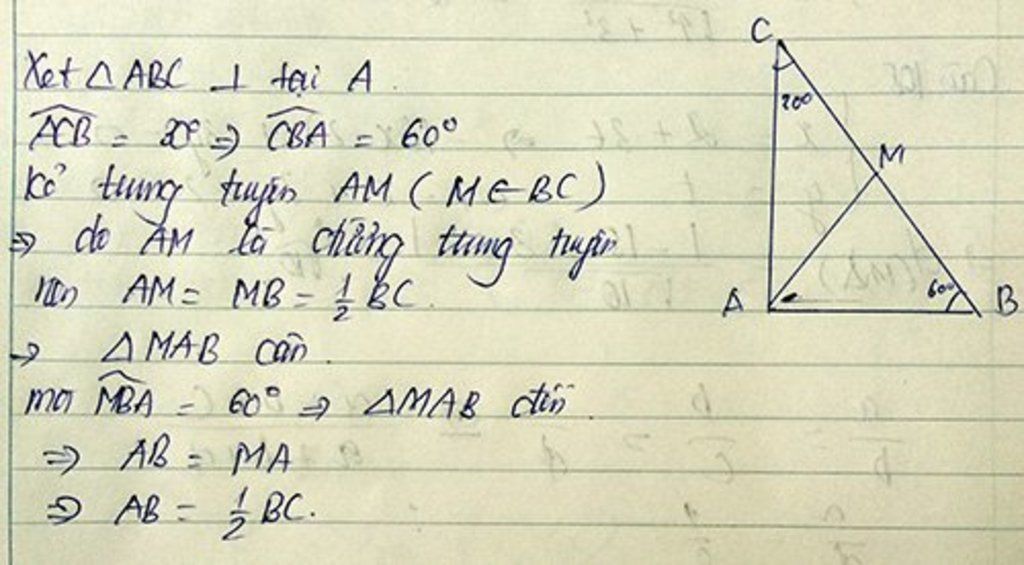 Xét △ABC ⊥ tại A.
ACB = 30° => CBA = 60°
Kẻ trung tuyến AM (M ∈ BC)
=> do AM là đường trung tuyến
nên AM = MB = 1/2 BC.
=> △MAB cân.
mà MBA = 60° => △MAB đều.
=> AB = MA
=> AB = 1/2 BC.
C
30°
M
A
60°
B